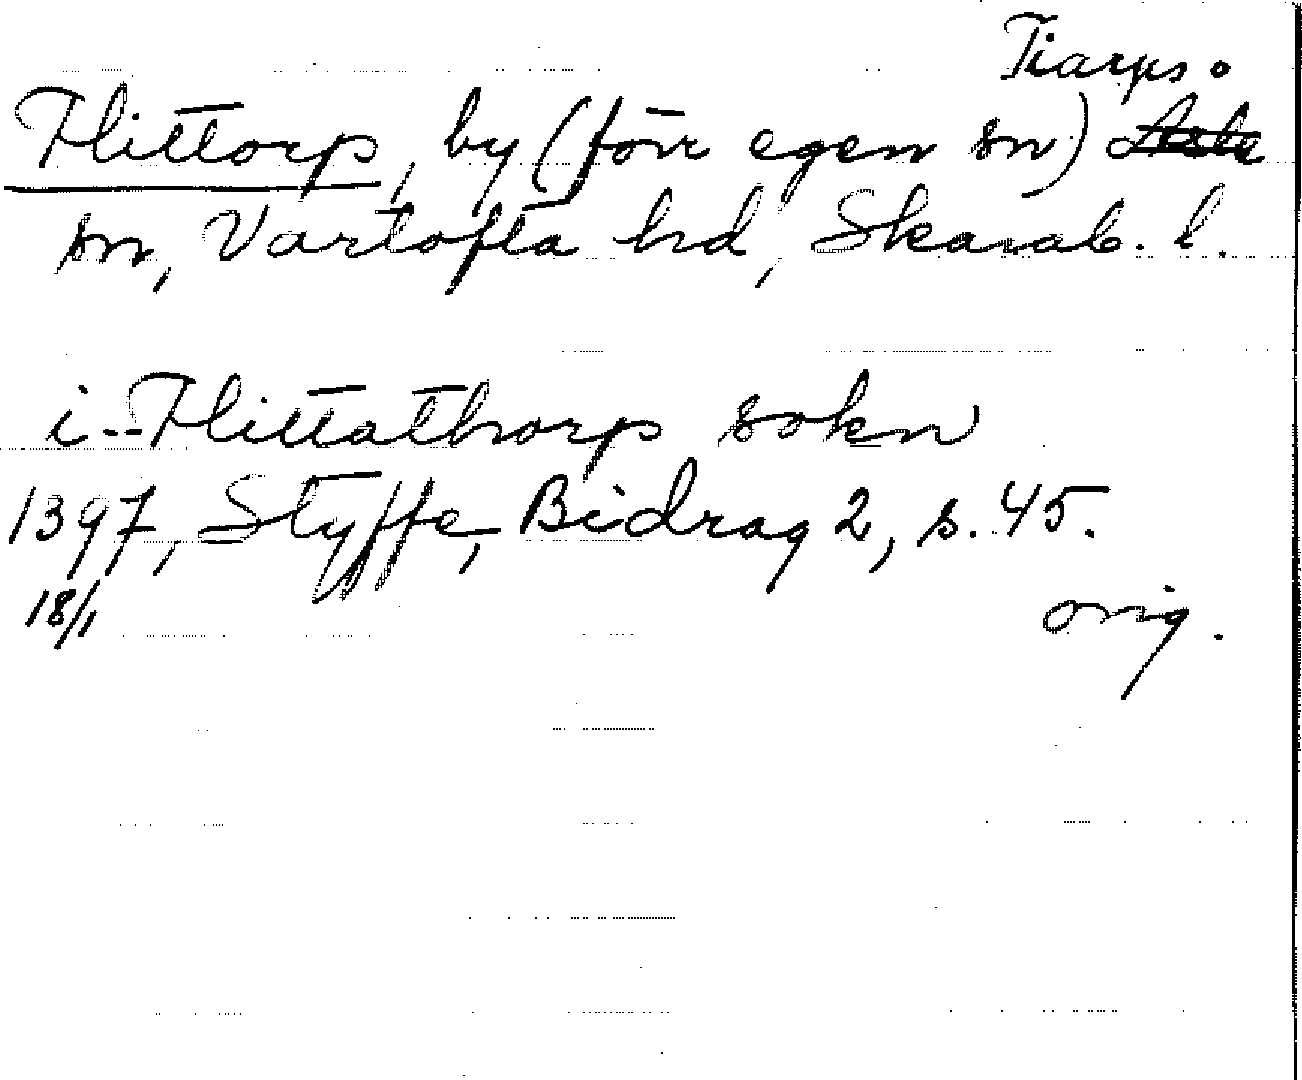 Tiarps
Hittorp, by (förr egen sn) Åsle
sn, Vartofta hd, Skarab. l.
i -- Hittathorp sokn
1397, Styffe, Bidrag 2, s. 45.
18/1
orig.